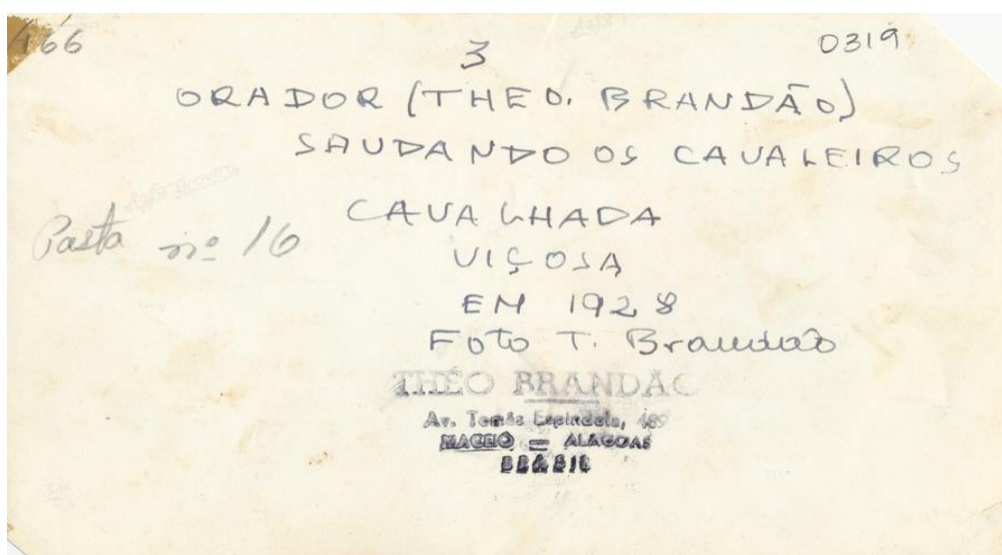 466
3
0319
ORADOR (THEO. BRANDÃO)
SAUDANDO OS CAVALEIROS
CAVALHADA
Pasta nº 16
VIÇOSA
EM 1928
Foto T. Brandão
THÉO BRANDÃO
Av. Tomás Espindola, 489
MACEIÓ = ALAGOAS
BRASIL